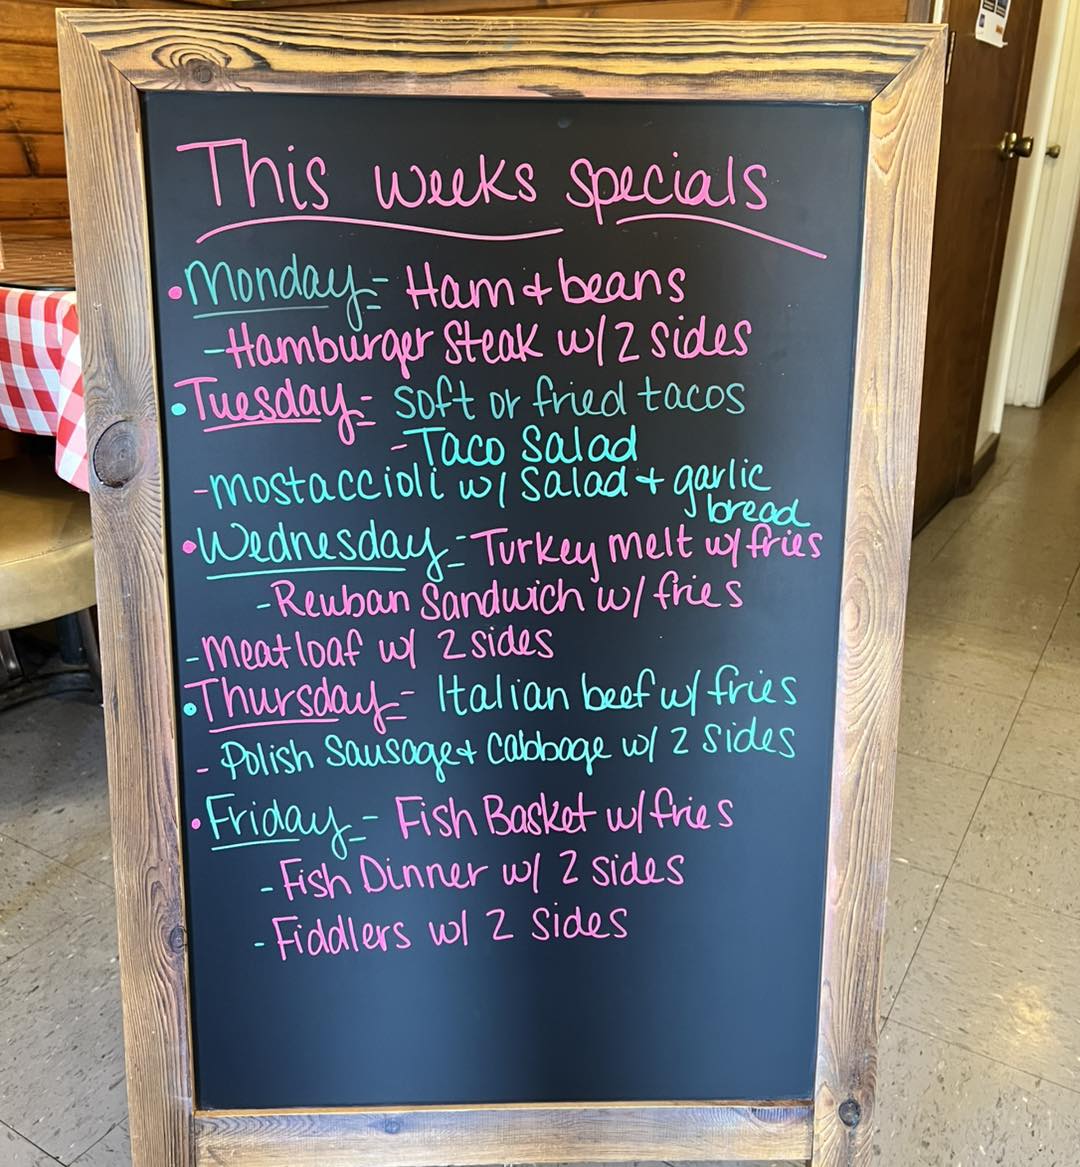 This weeks specials
• Monday - Ham + beans
- Hamburger Steak w/ 2 sides
• Tuesday - soft or fried tacos
- Taco Salad
- mostaccioli w/ salad + garlic
bread
• Wednesday - Turkey melt w/ fries
- Reuban Sandwich w/ fries
- Meatloaf w/ 2 sides
• Thursday - Italian beef w/ fries
- Polish Sausage + Cabbage w/ 2 sides
• Friday - Fish Basket w/ fries
- Fish Dinner w/ 2 sides
- Fiddlers w/ 2 sides